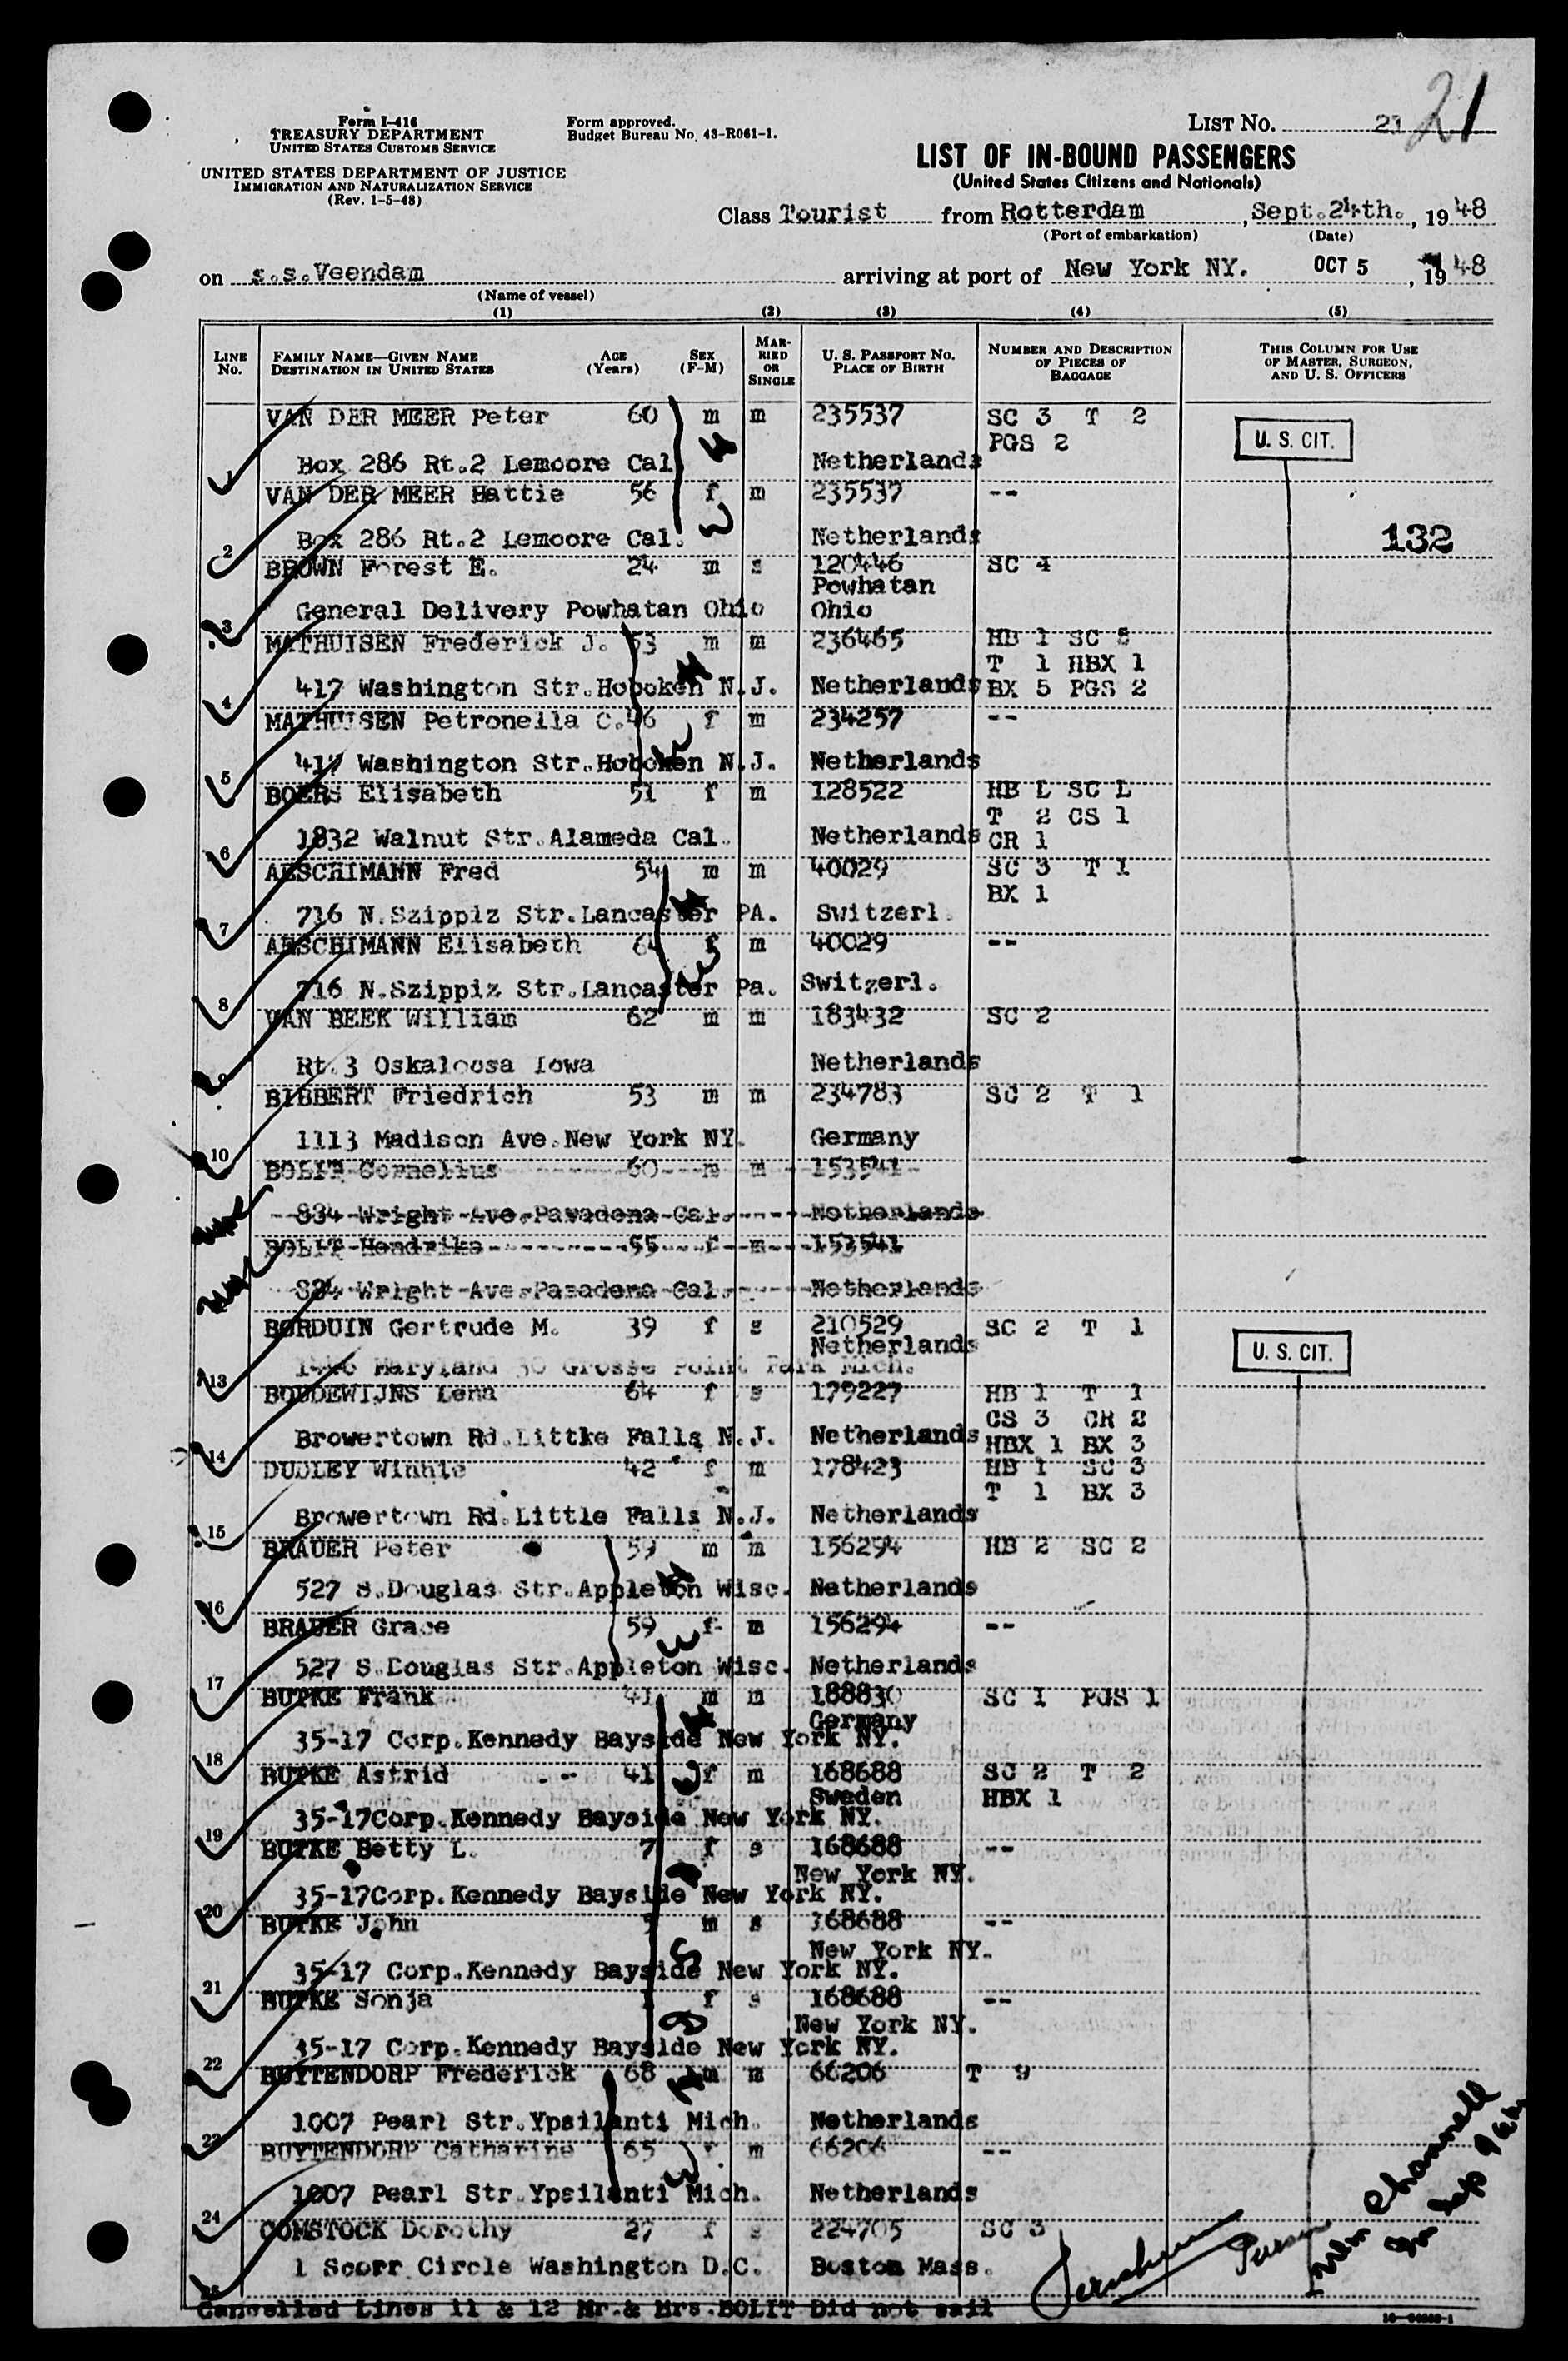 21
Form I-416
TREASURY DEPARTMENT
UNITED STATES CUSTOMS SERVICE
UNITED STATES DEPARTMENT OF JUSTICE
IMMIGRATION AND NATURALIZATION SERVICE
(Rev. 1-5-48)
Form approved.
Budget Bureau No. 43-R061-1.
LIST NO. 21
LIST OF IN-BOUND PASSENGERS
(United States Citizens and Nationals)
Class Tourist from Rotterdam, Sept.24th., 1948
(Port of embarkation) (Date)
on s.s.Veendam arriving at port of New York NY. OCT 5, 1948
(Name of vessel)
(1) (2) (3) (4) (5)
LINE No. FAMILY NAME—GIVEN NAME DESTINATION IN UNITED STATES AGE (Years) SEX (F-M) MARRIED OR SINGLE U. S. PASSPORT NO. PLACE OF BIRTH NUMBER AND DESCRIPTION OF PIECES OF BAGGAGE THIS COLUMN FOR USE OF MASTER, SURGEON, AND U. S. OFFICERS
VAN DER MEER Peter 60 m m 235537 SC 3 T 2
PGS 2 U. S. CIT.
1 Box 286 Rt.2 Lemoore Cal Netherlands
VAN DER MEER Hattie 56 f m 235537 --
2 Box 286 Rt.2 Lemoore Cal. Netherlands 132
BROWN Forest E. 24 m s 120446 SC 4
Powhatan
3 General Delivery Powhatan Ohio Ohio
MATHUISEN Frederick J. 53 m m 236465 HB 1 SC 5
T 1 HBX 1
4 417 Washington Str.Hoboken N.J. Netherlands BX 5 PGS 2
MATHUISEN Petronella C. 46 f m 234257 --
5 417 Washington Str.Hoboken N.J. Netherlands
BOERS Elisabeth 51 f m 128522 HB L SC L
T 2 CS 1
6 1832 Walnut Str.Alameda Cal. Netherlands CR 1
AESCHIMANN Fred 54 m m 40029 SC 3 T 1
BX 1
7 716 N.Szippiz Str.Lancaster PA. Switzerl.
AESCHIMANN Elisabeth 64 f m 40029 --
8 716 N.Szippiz Str.Lancaster Pa. Switzerl.
VAN BEEK William 62 m m 183432 SC 2
9 Rt.3 Oskaloosa Iowa Netherlands
BIBBERT Friedrich 53 m m 234783 SC 2 T 1
10 1113 Madison Ave.New York NY. Germany
BOLIT Cornelius 60 m m 153541
834 Wright Ave.Pasadena Cal. Netherlands
BOLIT Hendrika 55 f m 153541
834 Wright Ave.Pasadena Cal. Netherlands
BORDUIN Gertrude M. 39 f s 210529 SC 2 T 1
Netherlands U. S. CIT.
13 1446 Maryland 30 Grosse Point Park Mich.
BOUDEWIJNS Lena 64 f s 179227 HB 1 T 1
CS 3 CR 2
14 Browertown Rd.Littke Falls N.J. Netherlands HBX 1 BX 3
DUDLEY Winnie 42 f m 178423 HB 1 SC 3
T 1 BX 3
15 Browertown Rd.Little Falls N.J. Netherlands
BRAUER Peter 59 m m 156294 HB 2 SC 2
16 527 S.Douglas Str.Appleton Wisc. Netherlands
BRAUER Grace 59 f m 156294 --
17 527 S.Douglas Str.Appleton Wisc. Netherlands
BUTKE Frank 41 m m 188830 SC 1 PGS 1
Germany
18 35-17 Corp.Kennedy Bayside New York NY.
BUTKE Astrid 41 f m 168688 SC 2 T 2
Sweden HBX 1
19 35-17Corp.Kennedy Bayside New York NY.
BUTKE Betty L. 7 f s 168688 --
New York NY.
20 35-17Corp.Kennedy Bayside New York NY.
BUTKE John m s 168688 --
New York NY.
21 35-17 Corp.Kennedy Bayside New York NY.
BUTKE Sonja f s 168688 --
New York NY.
22 35-17 Corp.Kennedy Bayside New York NY.
BUYTENDORP Frederick 68 m m 66206 T 9
23 1007 Pearl Str.Ypsilanti Mich. Netherlands
BUYTENDORP Catharine 65 f m 66206 --
24 1007 Pearl Str.Ypsilanti Mich. Netherlands
COMSTOCK Dorothy 27 f s 224705 SC 3
25 1 Scorr Circle Washington D.C. Boston Mass.
Cancelled Lines 11 & 12 Mr.& Mrs.BOLIT Did not sail